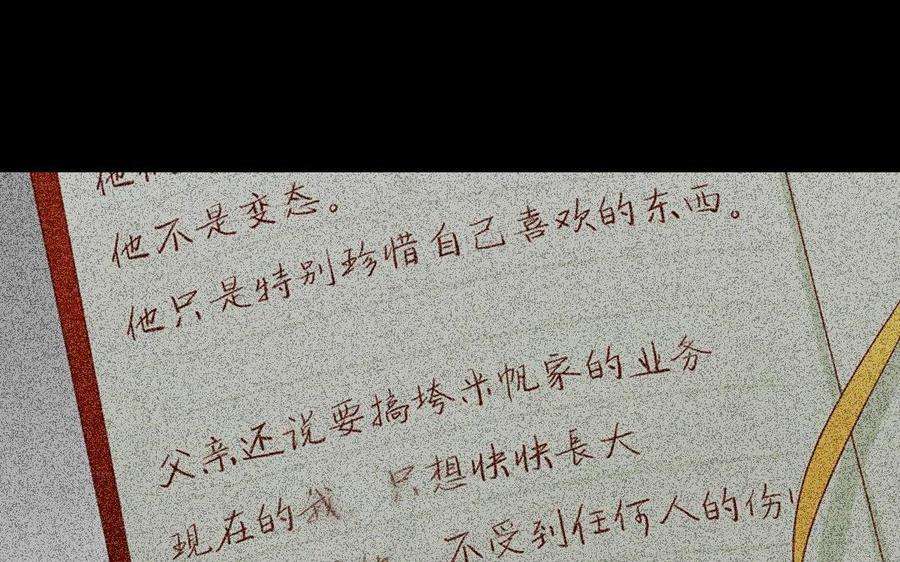 他不是变态。
他只是特别珍惜自己喜欢的东西。
父亲还说要搞垮米帆家的业务
现在的我 只想快快長大
不受到任何人的